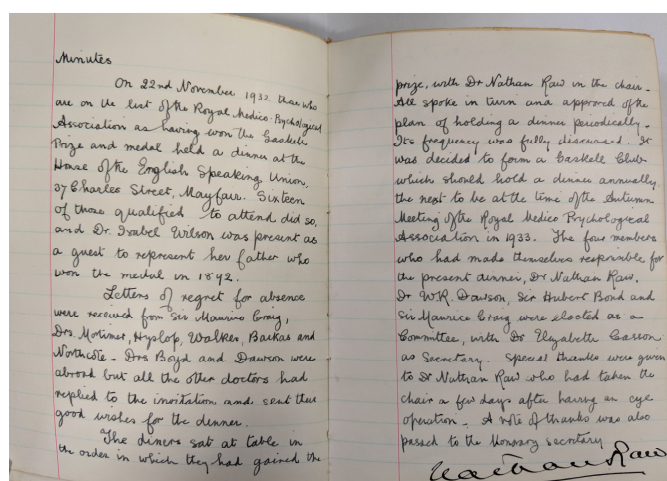 Minutes
On 22nd November 1932 those who
are on the list of the Royal Medico-Psychological
Association as having won the Gaskell
Prize and medal held a dinner at the
House of the English Speaking Union,
37 Charles Street, Mayfair. Sixteen
of those qualified to attend did so,
and Dr. Isabel Wilson was present as
a guest to represent her father who
won the medal in 1892.
Letters of regret for absence
were received from Sir Maurice Craig,
Drs. Mortimer, Hyslop, Walker, Barkas and
Northcote. Drs Boyd and Dawson were
abroad but all the other doctors had
replied to the invitation and sent their
good wishes for the dinner.
The diners sat at table in
the order in which they had gained the
prize, with Dr Nathan Raw in the chair.
All spoke in turn and approved of the
plan of holding a dinner periodically.
Its frequency was fully discussed. It
was decided to form a Gaskell Club
which should hold a dinner annually
the next to be at the time of the Autumn
Meeting of the Royal Medico Psychological
Association in 1933. The four members
who had made themselves responsible for
the present dinner, Dr Nathan Raw,
Dr W.R. Dawson, Sir Hubert Bond and
Sir Maurice Craig were elected as a
Committee, with Dr Elizabeth Casson
as Secretary. Special thanks were given
to Dr Nathan Raw who had taken the
chair a few days after having an eye
operation. A note of thanks was also
passed to the Honorary secretary
Nathan Raw